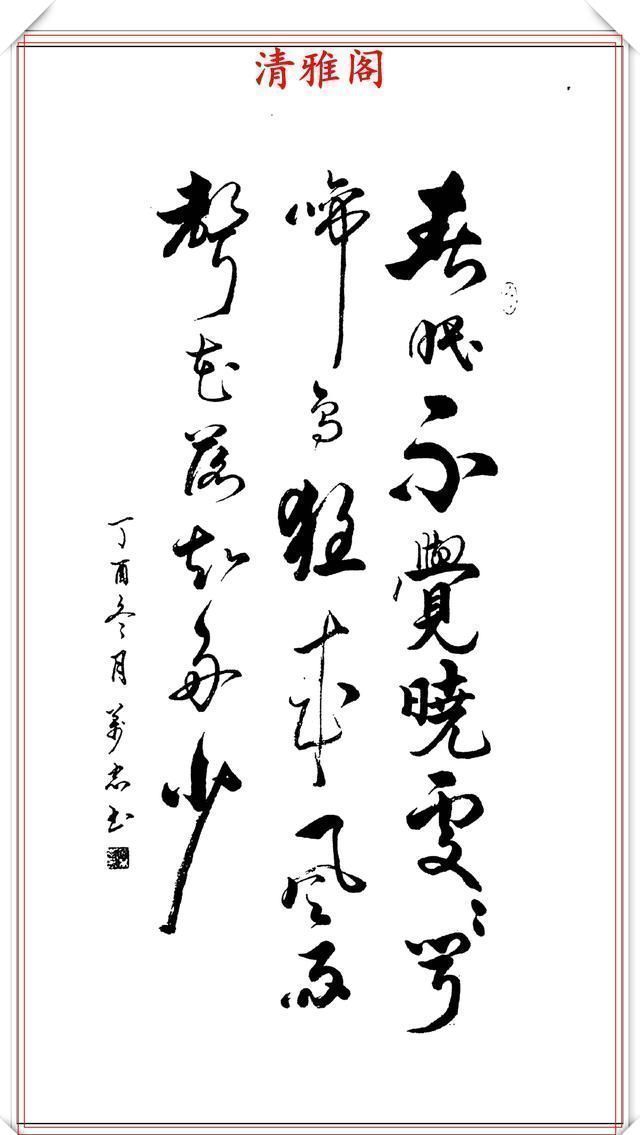 清雅阁
春眠不覺曉處々聞
啼鳥來風雨
聲花落知多少
丁酉冬月萬忠书